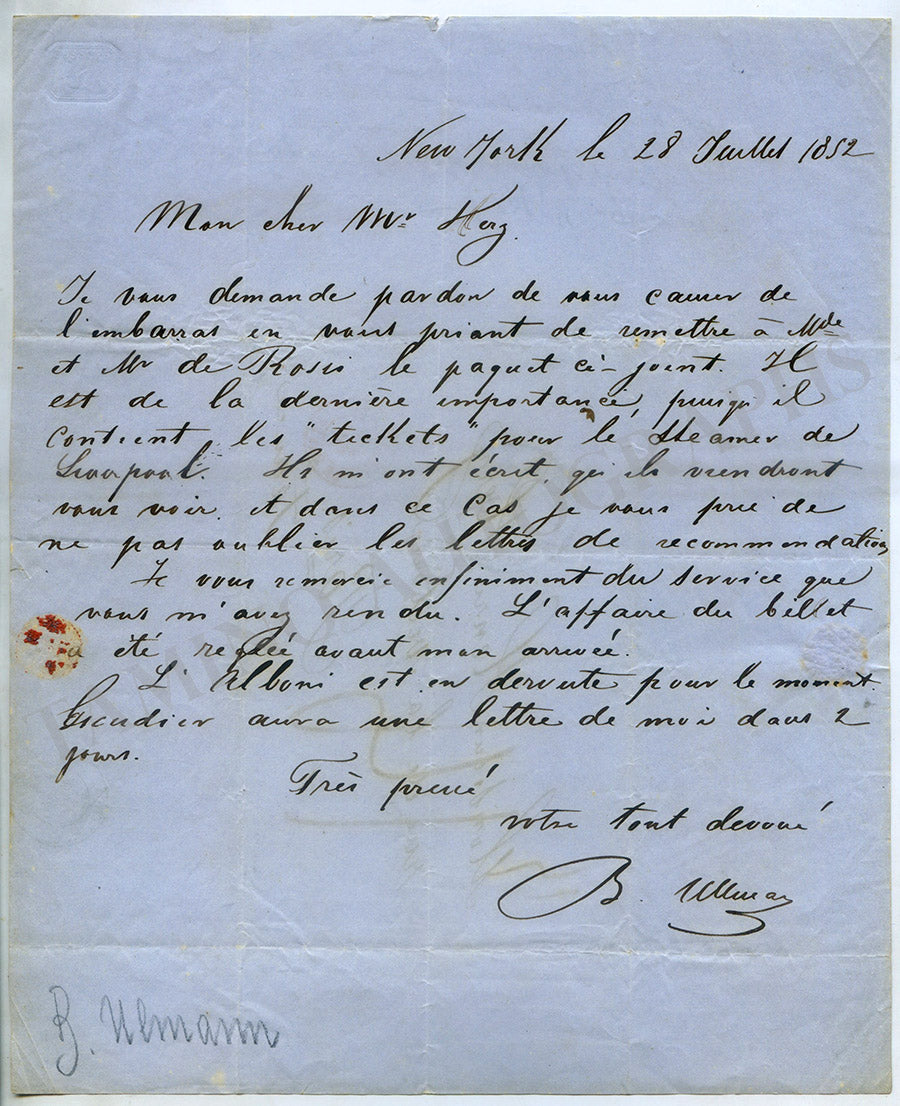 New York le 28 Juillet 1852
Mon cher Mr Herz.
Je vous demande pardon de vous causer de
l'embarras en vous priant de remettre à Mde
et Mr de Rosis le paquet ci-joint. Il
est de la dernière importance, puisqu'il
contient les "tickets" pour le Steamer de
Liverpool. Ils m'ont écrit, qu'ils viendront
vous voir, et dans ce cas je vous prie de
ne pas oublier les lettres de recommendation
Je vous remercie enfiniment du service que
vous m'avez rendu. L'affaire du billet
a été reglée avant mon arrivée.
L'Alboni est en deroute pour le moment.
Escudier aura une lettre de moi dans 2
jours.
Très pressé
votre tout devoué
B. Ullman
B. Ulmann